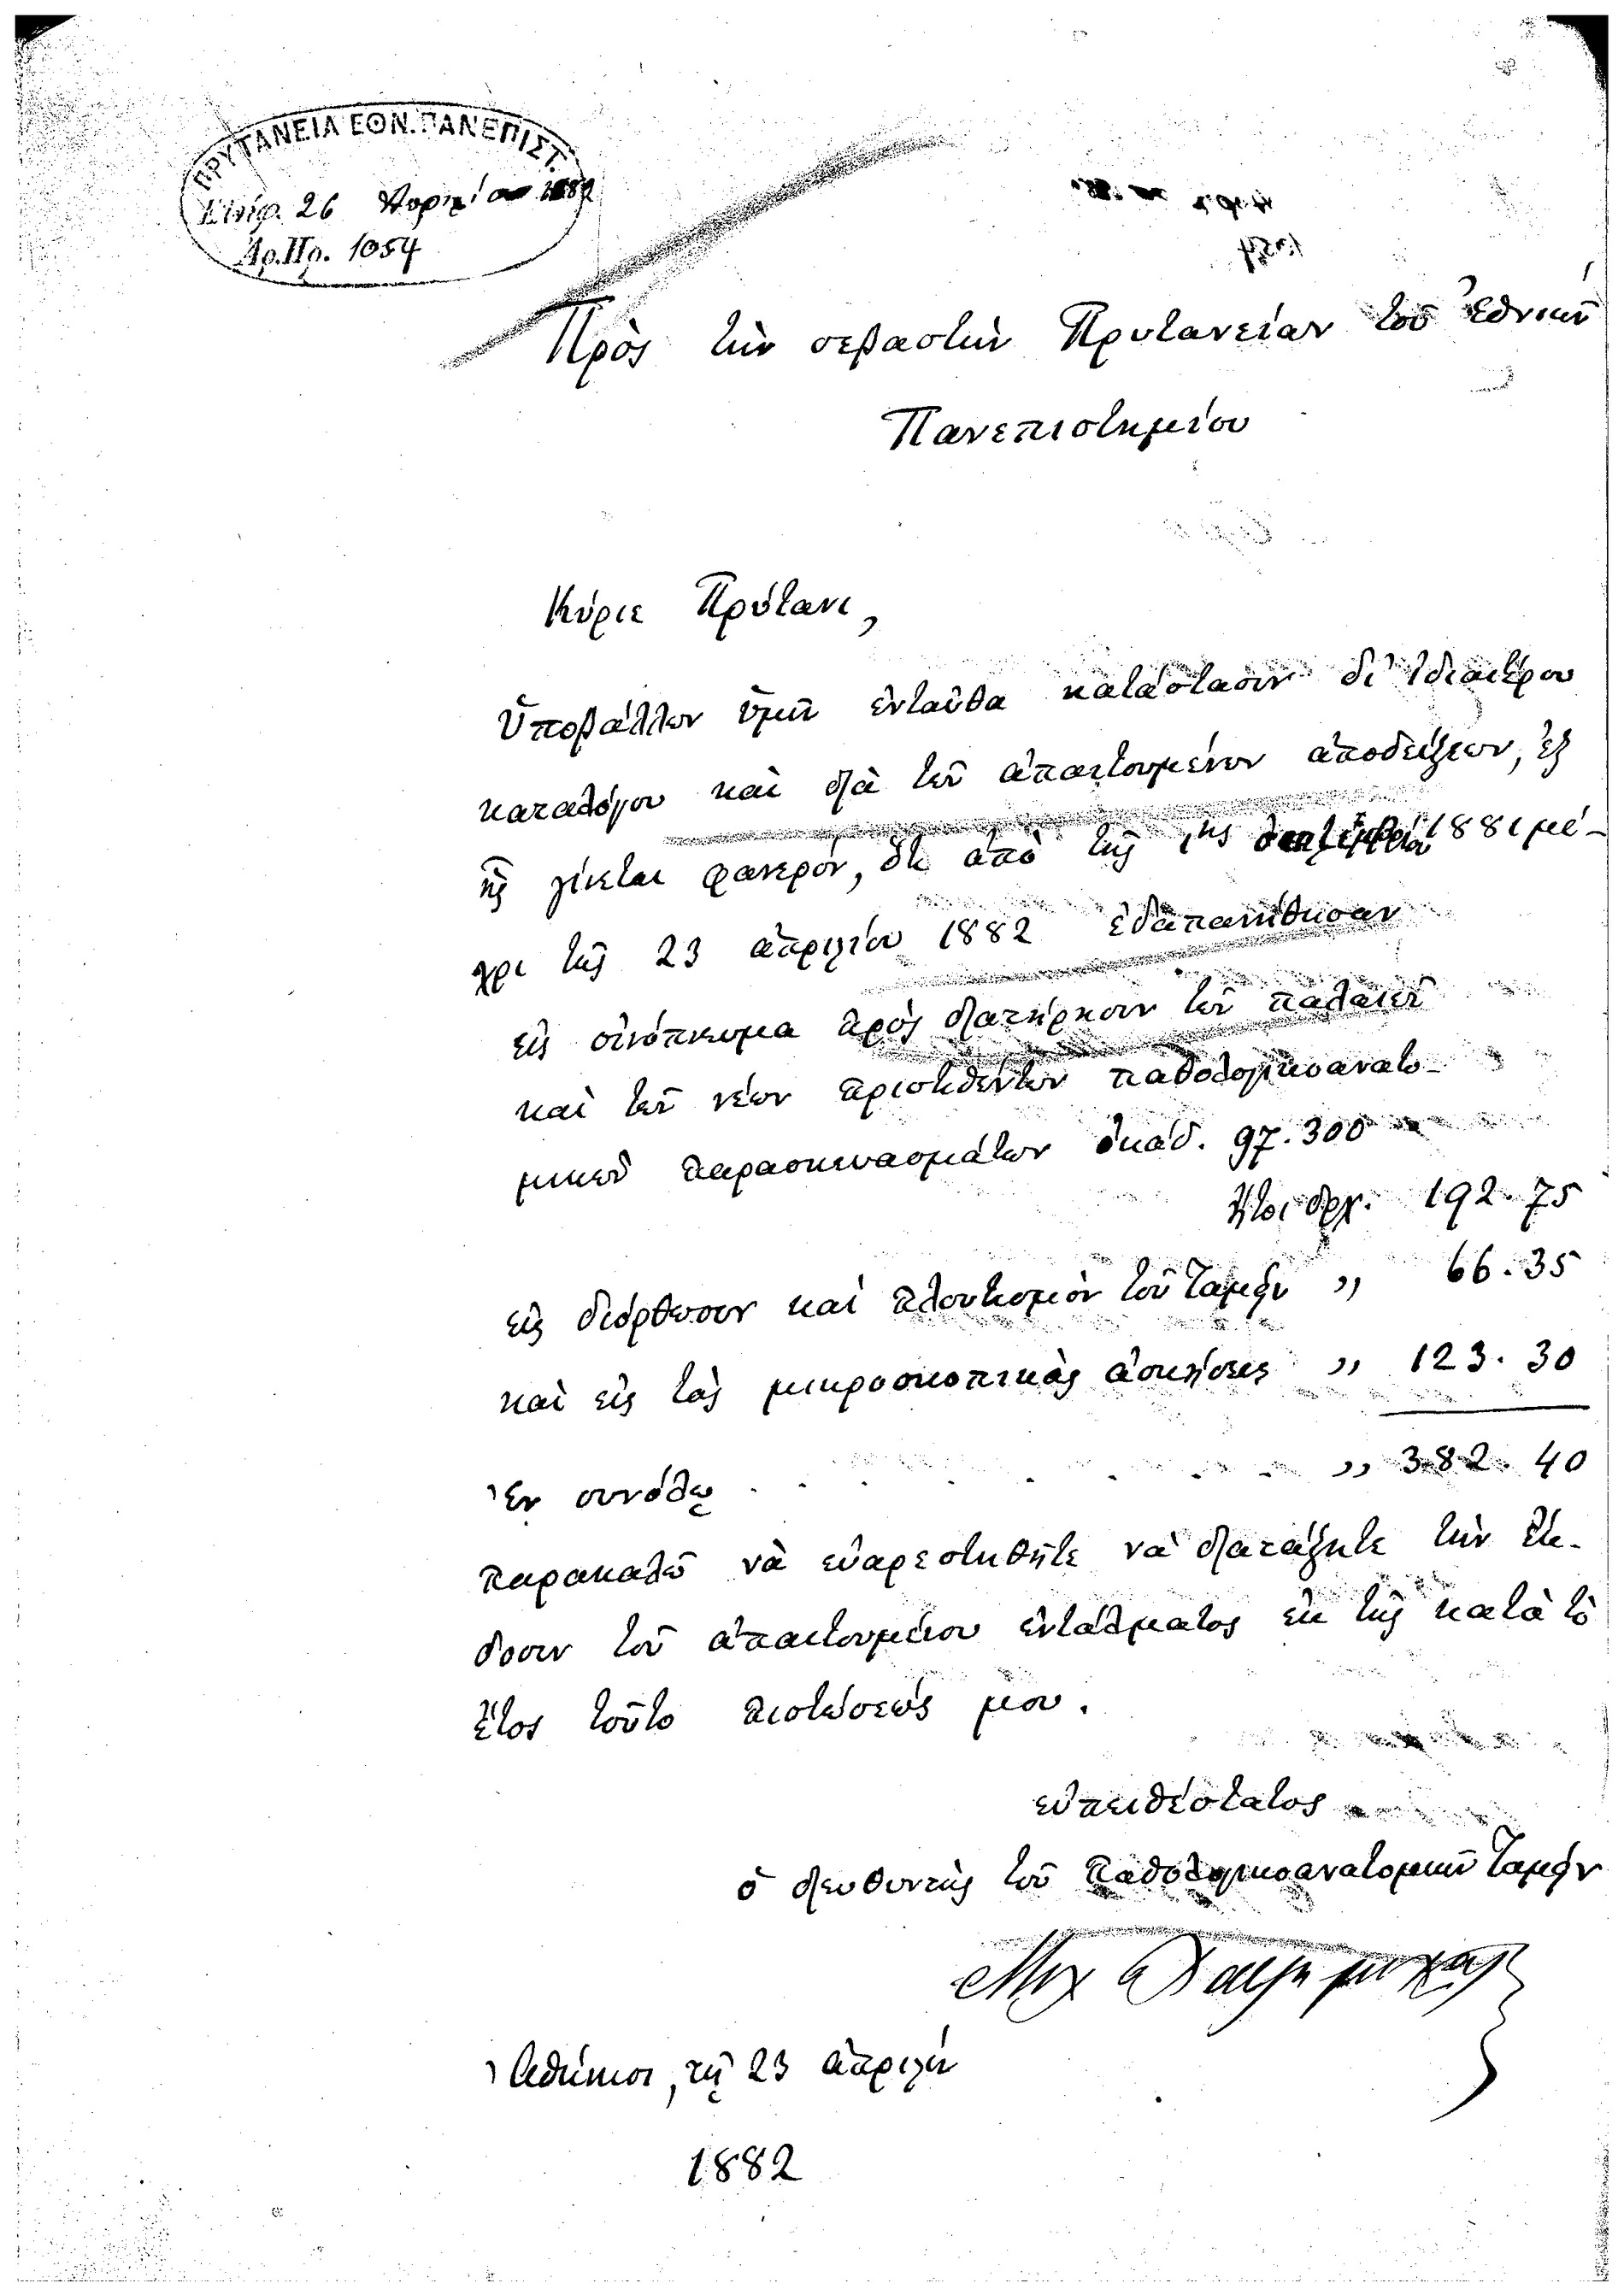 ΠΡΥΤΑΝΕΙΑ ΕΘΝ. ΠΑΝΕΠΙΣΤ.
26 Ἀπριλίου 1882
Ἀρ. Πρ. 1054
Πρὸς τὴν σεβαστὴν Πρυτανείαν τοῦ Ἐθνικοῦ
Πανεπιστημίου
Κύριε Πρύτανι,
Ὑποβάλλων ὑμῖν ἐνταῦθα κατάστασιν δι' ἰδιαιτέρου
καταλόγου καὶ διὰ τῶν ἀπαιτουμένων ἀποδείξεων, ἐξ
ἧς γίνεται φανερόν, ὅτι ἀπὸ τῆς 1ης Σεπτεμβρίου 1881 μέ-
χρι τῆς 23 ἀπριλίου 1882 ἐδαπανήθησαν
εἰς οἰνόπνευμα πρὸς διατήρησιν τῶν παλαιῶν
καὶ τῶν νέων προστεθέντων παθολογικοανατο-
μικῶν παρασκευασμάτων ὀκάδ. 97.300
ἤτοι δρχ. 192.75
εἰς διόρθωσιν καὶ πλουτισμὸν τοῦ Ταμείου ,, 66.35
καὶ εἰς τὰς μικροσκοπικὰς ἀσκήσεις ,, 123.30
Ἐν συνόλῳ . . . . . . . . ,, 382.40
παρακαλῶ νὰ εὐαρεστηθῆτε νὰ διατάξητε τὴν ἔκ-
δοσιν τοῦ ἀπαιτουμένου ἐντάλματος ἐκ τῆς κατὰ τὸ
ἔτος τοῦτο πιστώσεώς μου.
εὐπειθέστατος
ὁ διευθυντὴς τοῦ Παθολογικοανατομικοῦ Ταμείου
Μιχ
Ἀθήνησι, τῇ 23 ἀπριλίου
1882